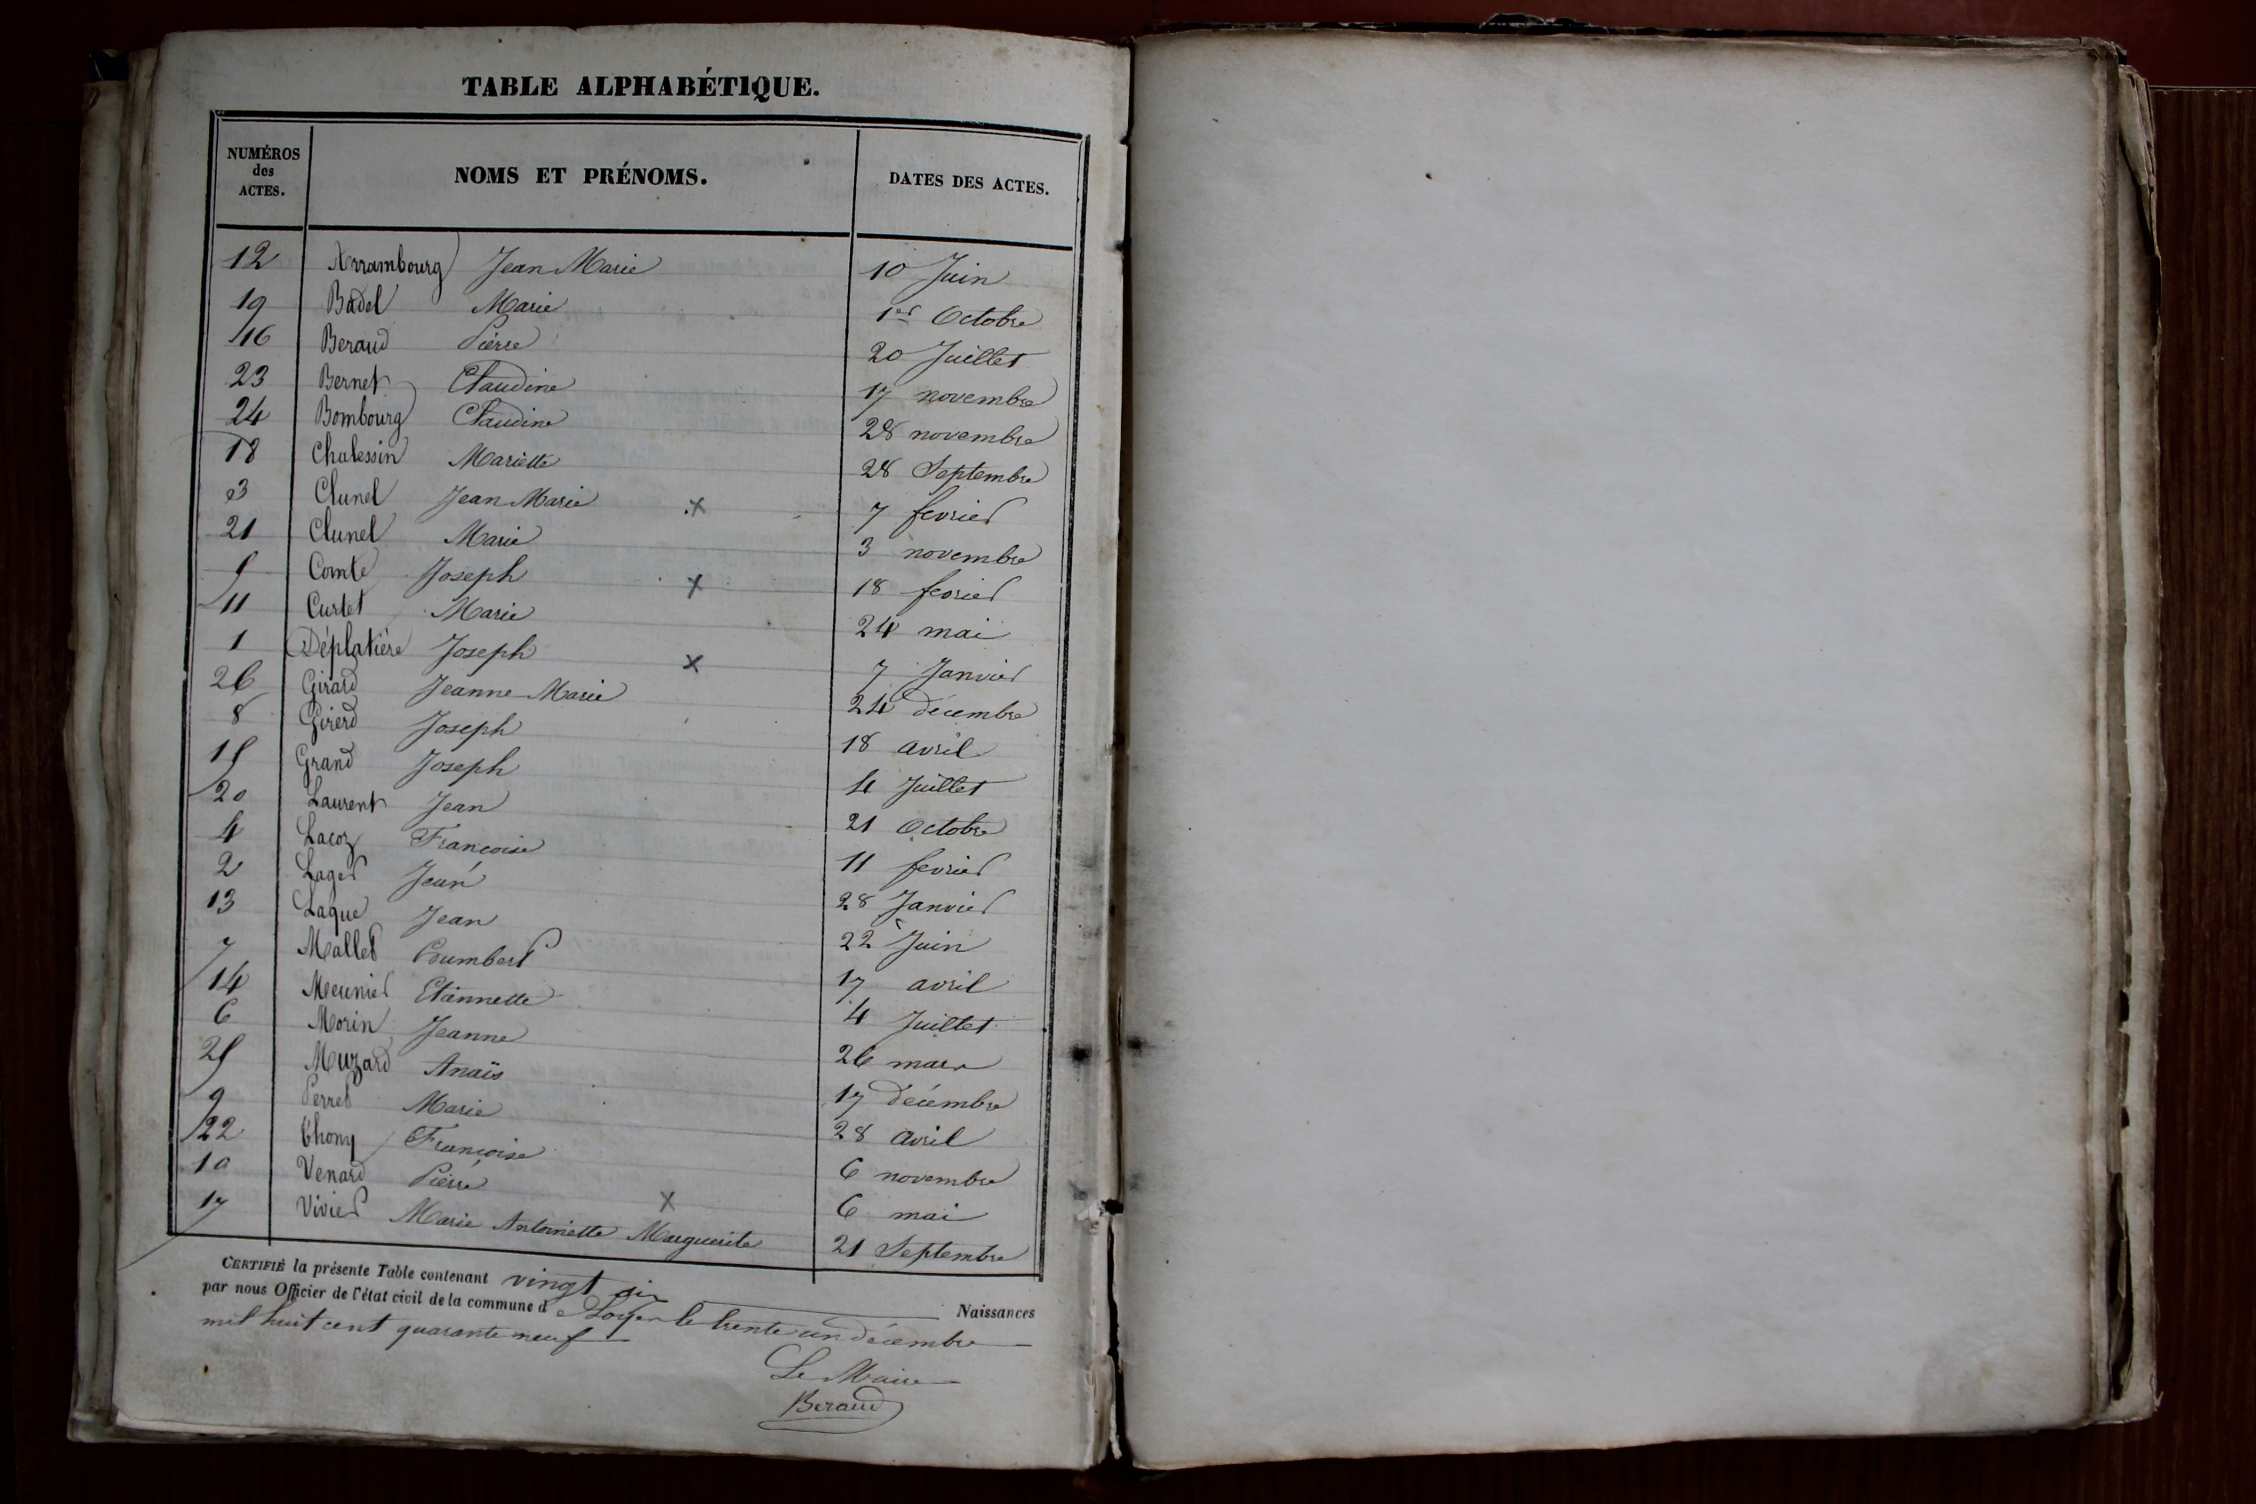 TABLE ALPHABÉTIQUE.
NUMÉROS des ACTES. NOMS ET PRÉNOMS. DATES DES ACTES.
12 Arrambourg Jean Marie 10 Juin
19 Badel Marie 1er Octobre
16 Beraud Pierre 20 Juillet
23 Bernet Claudine 17 novembre
24 Bombourg Claudine 28 novembre
18 Chalessin Mariette 28 Septembre
3 Clunel Jean Marie x 7 fevrier
21 Clunel Marie 3 novembre
5 Comte Joseph x 18 fevrier
11 Curtet Marie 24 mai
1 Déplatière Joseph x 7 Janvier
26 Girard Jeanne Marie 24 décembre
8 Girerd Joseph 18 avril
15 Grand Joseph 4 Juillet
20 Laurent Jean 21 Octobre
4 Lacoz Francoise 11 fevrier
2 Lager Jean 28 Janvier
13 Laque Jean 22 Juin
7 Mallet 17 avril
14 Meunier Etiennette 4 Juillet
6 Morin Jeanne 26 mars
25 Muzard Anaïs 17 décembre
9 Perret Marie 28 avril
22 Thony Francoise 6 novembre
10 Venard Pierre x 6 mai
17 Vivier Marie Antoinette Marguerite 21 Septembre
CERTIFIÉ la présente Table contenant vingt six Naissances
par nous Officier de l'état civil de la commune de Loyes le trente un décembre
mil huit cent quarante neuf
Le Maire
Beraud